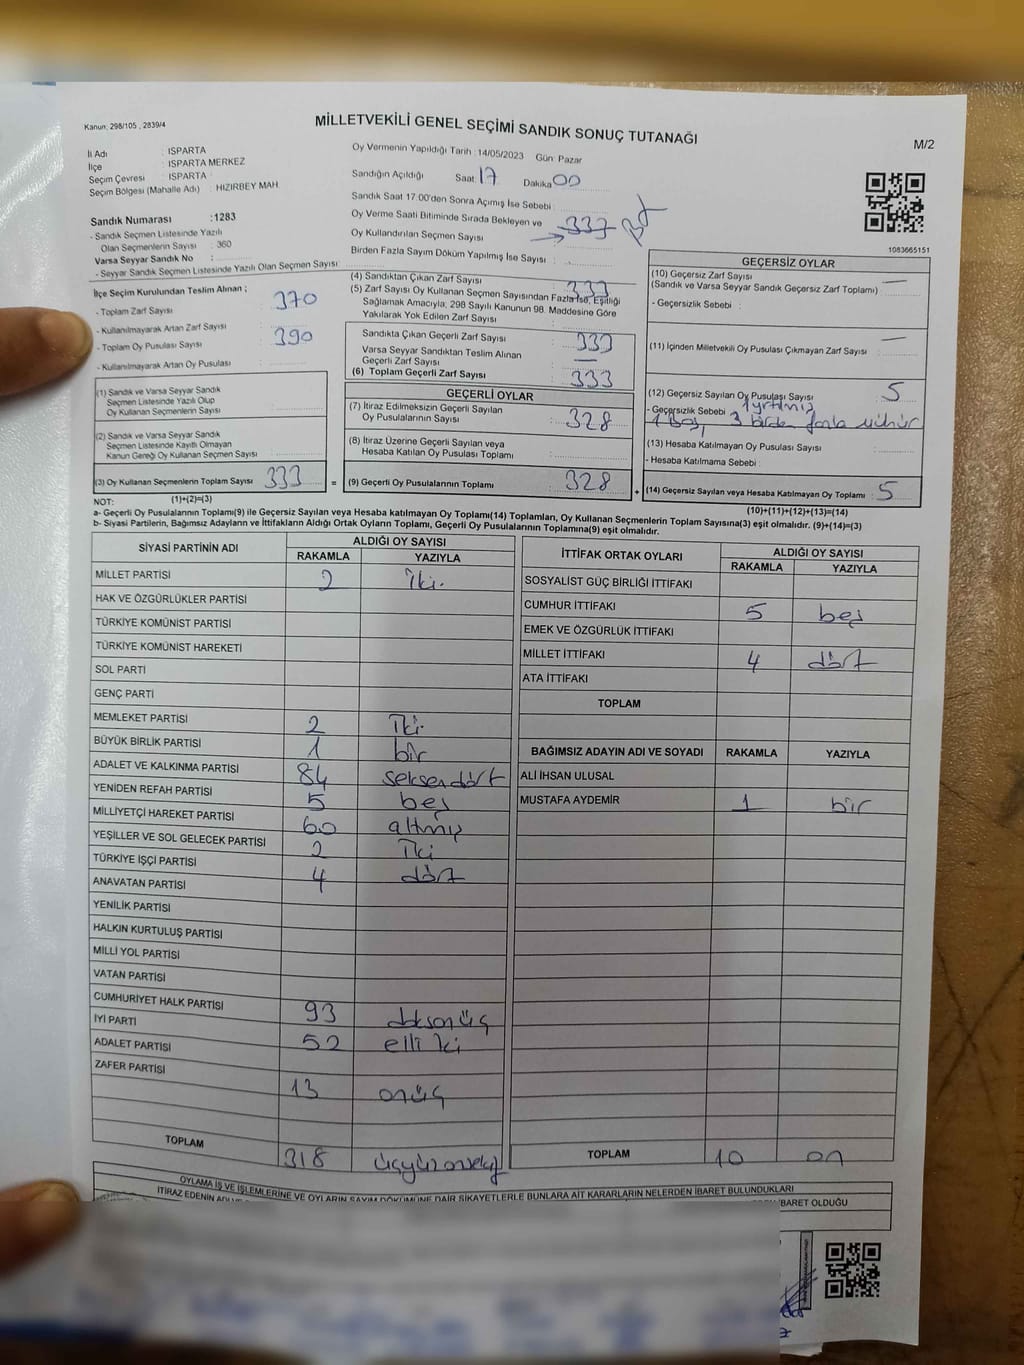 Kanun: 298/105 , 2839/4
MİLLETVEKİLİ GENEL SEÇİMİ SANDIK SONUÇ TUTANAĞI
M/2
İl Adı : ISPARTA
İlçe : ISPARTA MERKEZ
Seçim Çevresi : ISPARTA
Seçim Bölgesi (Mahalle Adı) : HIZIRBEY MAH.
Sandık Numarası : 1283
- Sandık Seçmen Listesinde Yazılı
Olan Seçmenlerin Sayısı : 360
Varsa Seyyar Sandık No :
- Seyyar Sandık Seçmen Listesinde Yazılı Olan Seçmen Sayısı :
Oy Vermenin Yapıldığı Tarih : 14/05/2023 Gün: Pazar
Sandığın Açıldığı Saat: 17 Dakika 00
Sandık Saat 17:00'den Sonra Açımış İse Sebebi :
Oy Verme Saati Bitiminde Sırada Bekleyen ve
Oy Kullandırılan Seçmen Sayısı 333
Birden Fazla Sayım Döküm Yapılmış İse Sayısı :
1083665151
İlçe Seçim Kurulundan Teslim Alınan ;
- Toplam Zarf Sayısı : 370
- Kullanılmayarak Artan Zarf Sayısı :
- Toplam Oy Pusulası Sayısı : 390
- Kullanılmayarak Artan Oy Pusulası :
(1) Sandık ve Varsa Seyyar Sandık
Seçmen Listesinde Yazılı Olup
Oy Kullanan Seçmenlerin Sayısı
(2) Sandık ve Varsa Seyyar Sandık
Seçmen Listesinde Kayıtlı Olmayan
Kanun Gereği Oy Kullanan Seçmen Sayısı :
(3) Oy Kullanan Seçmenlerin Toplam Sayısı 333 =
(4) Sandıktan Çıkan Zarf Sayısı : 333
(5) Zarf Sayısı Oy Kullanan Seçmen Sayısından Fazla İse, Eşitliği
Sağlamak Amacıyla; 298 Sayılı Kanunun 98. Maddesine Göre
Yakılarak Yok Edilen Zarf Sayısı :
Sandıkta Çıkan Geçerli Zarf Sayısı : 333
Varsa Seyyar Sandıktan Teslim Alınan
Geçerli Zarf Sayısı : —
(6) Toplam Geçerli Zarf Sayısı : 333
GEÇERLİ OYLAR
(7) İtiraz Edilmeksizin Geçerli Sayılan
Oy Pusulalarının Sayısı : 328
(8) İtiraz Üzerine Geçerli Sayılan veya
Hesaba Katılan Oy Pusulası Toplamı :
(9) Geçerli Oy Pusulalarının Toplamı : 328 +
GEÇERSİZ OYLAR
(10) Geçersiz Zarf Sayısı
(Sandık ve Varsa Seyyar Sandık Geçersiz Zarf Toplamı) : —
- Geçersizlik Sebebi :
(11) İçinden Milletvekili Oy Pusulası Çıkmayan Zarf Sayısı : —
(12) Geçersiz Sayılan Oy Pusulası Sayısı : 5
- Geçersizlik Sebebi : 1 yırtılmış
1 Boş, 3 birden fazla mühür
(13) Hesaba Katılmayan Oy Pusulası Sayısı :
- Hesaba Katılmama Sebebi :
(14) Geçersiz Sayılan veya Hesaba Katılmayan Oy Toplamı : 5
NOT: (1)+(2)=(3)
(10)+(11)+(12)+(13)=(14)
a- Geçerli Oy Pusulalarının Toplamı(9) ile Geçersiz Sayılan veya Hesaba katılmayan Oy Toplamı(14) Toplamları, Oy Kullanan Seçmenlerin Toplam Sayısına(3) eşit olmalıdır. (9)+(14)=(3)
b- Siyasi Partilerin, Bağımsız Adayların ve İttifakların Aldığı Ortak Oyların Toplamı, Geçerli Oy Pusulalarının Toplamına(9) eşit olmalıdır.
SİYASİ PARTİNİN ADI ALDIĞI OY SAYISI
RAKAMLA YAZIYLA
MİLLET PARTİSİ 2 iki
HAK VE ÖZGÜRLÜKLER PARTİSİ
TÜRKİYE KOMÜNİST PARTİSİ
TÜRKİYE KOMÜNİST HAREKETİ
SOL PARTİ
GENÇ PARTİ
MEMLEKET PARTİSİ 2 iki
BÜYÜK BİRLİK PARTİSİ 1 bir
ADALET VE KALKINMA PARTİSİ 84 seksendört
YENİDEN REFAH PARTİSİ 5 beş
MİLLİYETÇİ HAREKET PARTİSİ 60 altmış
YEŞİLLER VE SOL GELECEK PARTİSİ 2 iki
TÜRKİYE İŞÇİ PARTİSİ 4 dört
ANAVATAN PARTİSİ
YENİLİK PARTİSİ
HALKIN KURTULUŞ PARTİSİ
MİLLİ YOL PARTİSİ
VATAN PARTİSİ
CUMHURİYET HALK PARTİSİ 93 doksanüç
İYİ PARTİ 52 elli iki
ADALET PARTİSİ
ZAFER PARTİSİ 13 onüç
TOPLAM 318 üçyüzonsekiz
İTTİFAK ORTAK OYLARI ALDIĞI OY SAYISI
RAKAMLA YAZIYLA
SOSYALİST GÜÇ BİRLİĞİ İTTİFAKI
CUMHUR İTTİFAKI 5 beş
EMEK VE ÖZGÜRLÜK İTTİFAKI
MİLLET İTTİFAKI 4 dört
ATA İTTİFAKI
TOPLAM
BAĞIMSIZ ADAYIN ADI VE SOYADI RAKAMLA YAZIYLA
ALİ İHSAN ULUSAL
MUSTAFA AYDEMİR 1 bir
TOPLAM 10 on
OYLAMA İŞ VE İŞLEMLERİNE VE OYLARIN SAYIM DÖKÜMÜNE DAİR ŞİKAYETLERLE BUNLARA AİT KARARLARIN NELERDEN İBARET BULUNDUKLARI
İTİRAZ EDENİN ADI
İBARET OLDUĞU